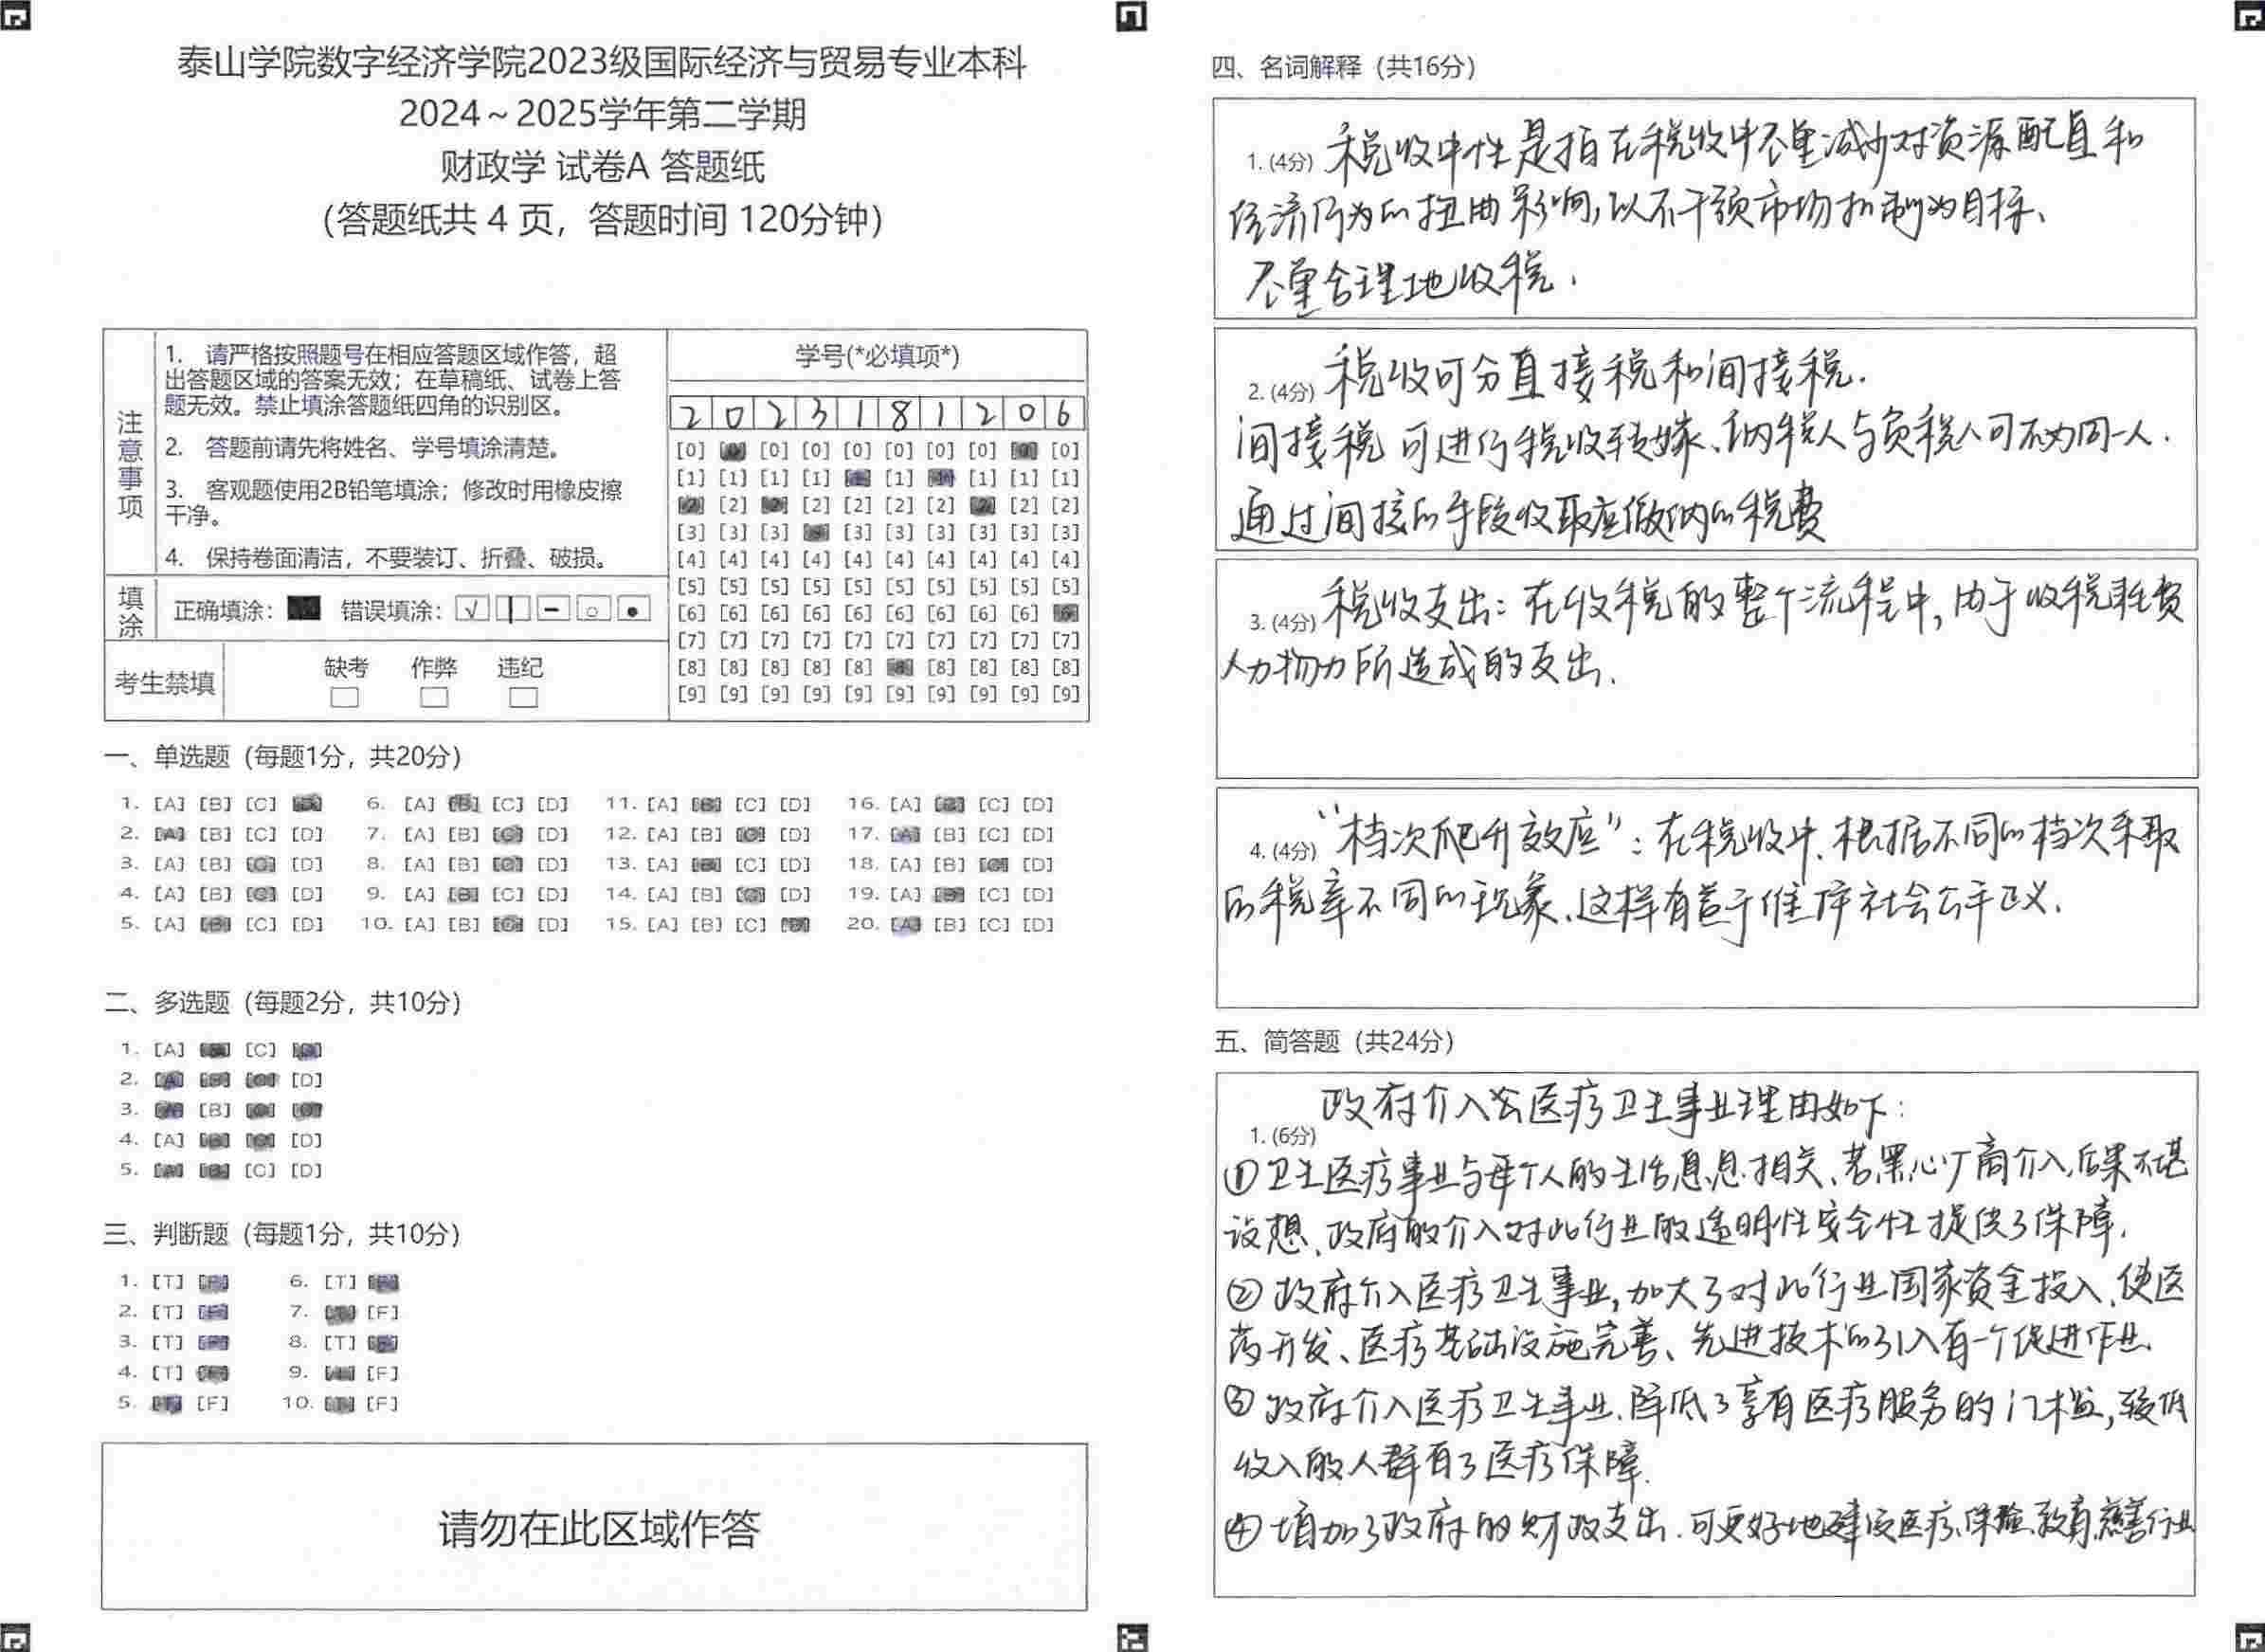 泰山学院数字经济学院2023级国际经济与贸易专业本科
2024～2025学年第二学期
财政学 试卷A 答题纸
（答题纸共 4 页，答题时间 120分钟）
注意事项
1. 请严格按照题号在相应答题区域作答，超
出答题区域的答案无效；在草稿纸、试卷上答
题无效。禁止填涂答题纸四角的识别区。
2. 答题前请先将姓名、学号填涂清楚。
3. 客观题使用2B铅笔填涂；修改时用橡皮擦
干净。
4. 保持卷面清洁，不要装订、折叠、破损。
填涂 正确填涂： 错误填涂：
考生禁填 缺考 作弊 违纪
学号(*必填项*)
2 0 2 3 1 8 1 2 0 6
[0] [0] [0] [0] [0] [0] [0] [0] [0] [0]
[1] [1] [1] [1] [1] [1] [1] [1] [1] [1]
[2] [2] [2] [2] [2] [2] [2] [2] [2] [2]
[3] [3] [3] [3] [3] [3] [3] [3] [3] [3]
[4] [4] [4] [4] [4] [4] [4] [4] [4] [4]
[5] [5] [5] [5] [5] [5] [5] [5] [5] [5]
[6] [6] [6] [6] [6] [6] [6] [6] [6] [6]
[7] [7] [7] [7] [7] [7] [7] [7] [7] [7]
[8] [8] [8] [8] [8] [8] [8] [8] [8] [8]
[9] [9] [9] [9] [9] [9] [9] [9] [9] [9]
一、单选题（每题1分，共20分）
1. [A] [B] [C] [D] 6. [A] [B] [C] [D] 11. [A] [B] [C] [D] 16. [A] [B] [C] [D]
2. [A] [B] [C] [D] 7. [A] [B] [C] [D] 12. [A] [B] [C] [D] 17. [A] [B] [C] [D]
3. [A] [B] [C] [D] 8. [A] [B] [C] [D] 13. [A] [B] [C] [D] 18. [A] [B] [C] [D]
4. [A] [B] [C] [D] 9. [A] [B] [C] [D] 14. [A] [B] [C] [D] 19. [A] [B] [C] [D]
5. [A] [B] [C] [D] 10. [A] [B] [C] [D] 15. [A] [B] [C] [D] 20. [A] [B] [C] [D]
二、多选题（每题2分，共10分）
1. [A] [B] [C] [D]
2. [A] [B] [C] [D]
3. [A] [B] [C] [D]
4. [A] [B] [C] [D]
5. [A] [B] [C] [D]
三、判断题（每题1分，共10分）
1. [T] [F] 6. [T] [F]
2. [T] [F] 7. [T] [F]
3. [T] [F] 8. [T] [F]
4. [T] [F] 9. [T] [F]
5. [T] [F] 10. [T] [F]
请勿在此区域作答
四、名词解释（共16分）
1. (4分) 税收中性是指在税收中尽量减少对资源配置和
经济行为的扭曲影响，以不干预市场机制为目标、
尽量合理地收税.
2. (4分) 税收可分直接税和间接税.
间接税可进行税收转嫁、纳税人与负税人可不为同一人.
通过间接的手段收取应缴纳的税费
3. (4分) 税收支出：在收税的整个流程中，由于收税耗费
人力物力所造成的支出.
4. (4分) “档次爬升效应”：在税收中、根据不同的档次采取
的税率不同的现象、这样有益于维护社会公平正义.
五、简答题（共24分）
1. (6分) 政府介入医疗卫生事业理由如下：
①卫生医疗事业与每个人的生活息息相关、若黑心厂商介入，后果不堪
设想、政府的介入对此行业的透明性安全性提供了保障.
②政府介入医疗卫生事业，加大了对此行业国家资金投入、使医
药开发、医疗基础设施完善、先进技术的引入有一个促进作业.
③政府介入医疗卫生事业、降低了享有医疗服务的门槛，较低
收入的人群有了医疗保障.
④增加了政府的财政支出. 可更好地建设医疗、保险、教育、慈善行业